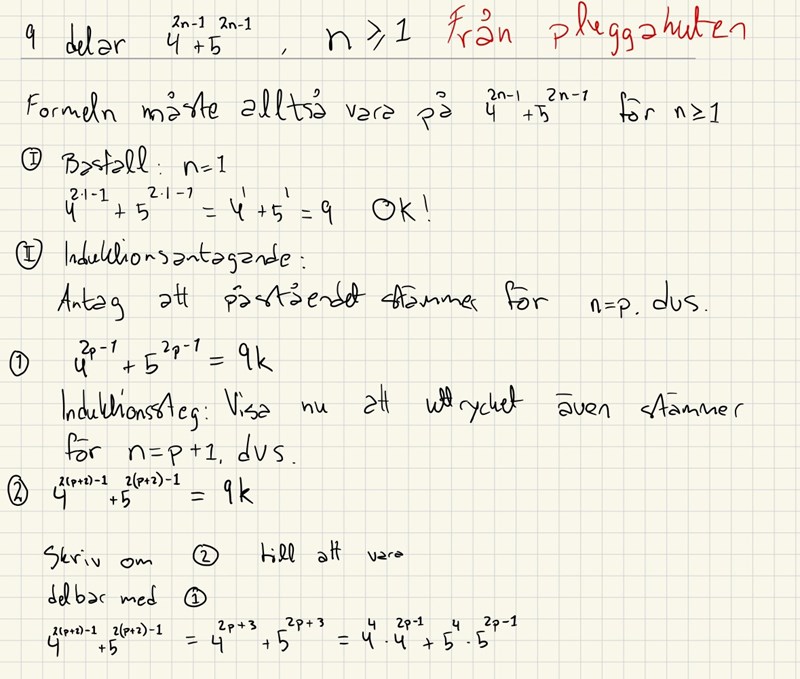 9 delar 4^{2n-1} + 5^{2n-1}, n ≥ 1 Från pluggahuten
Formeln måste alltså vara på 4^{2n-1} + 5^{2n-1} för n ≥ 1
(I) Basfall: n=1
4^{2·1-1} + 5^{2·1-1} = 4^1 + 5^1 = 9 OK!
(I) Induktionsantagande:
Antag att påståendet stämmer för n=p. dvs.
① 4^{2p-1} + 5^{2p-1} = 9k
Induktionssteg: Visa nu att uttrycket även stämmer
för n=p+1, dvs.
② 4^{2(p+2)-1} + 5^{2(p+2)-1} = 9k
Skriv om ② till att vara
delbar med ①
4^{2(p+2)-1} + 5^{2(p+2)-1} = 4^{2p+3} + 5^{2p+3} = 4^4 · 4^{2p-1} + 5^4 · 5^{2p-1}